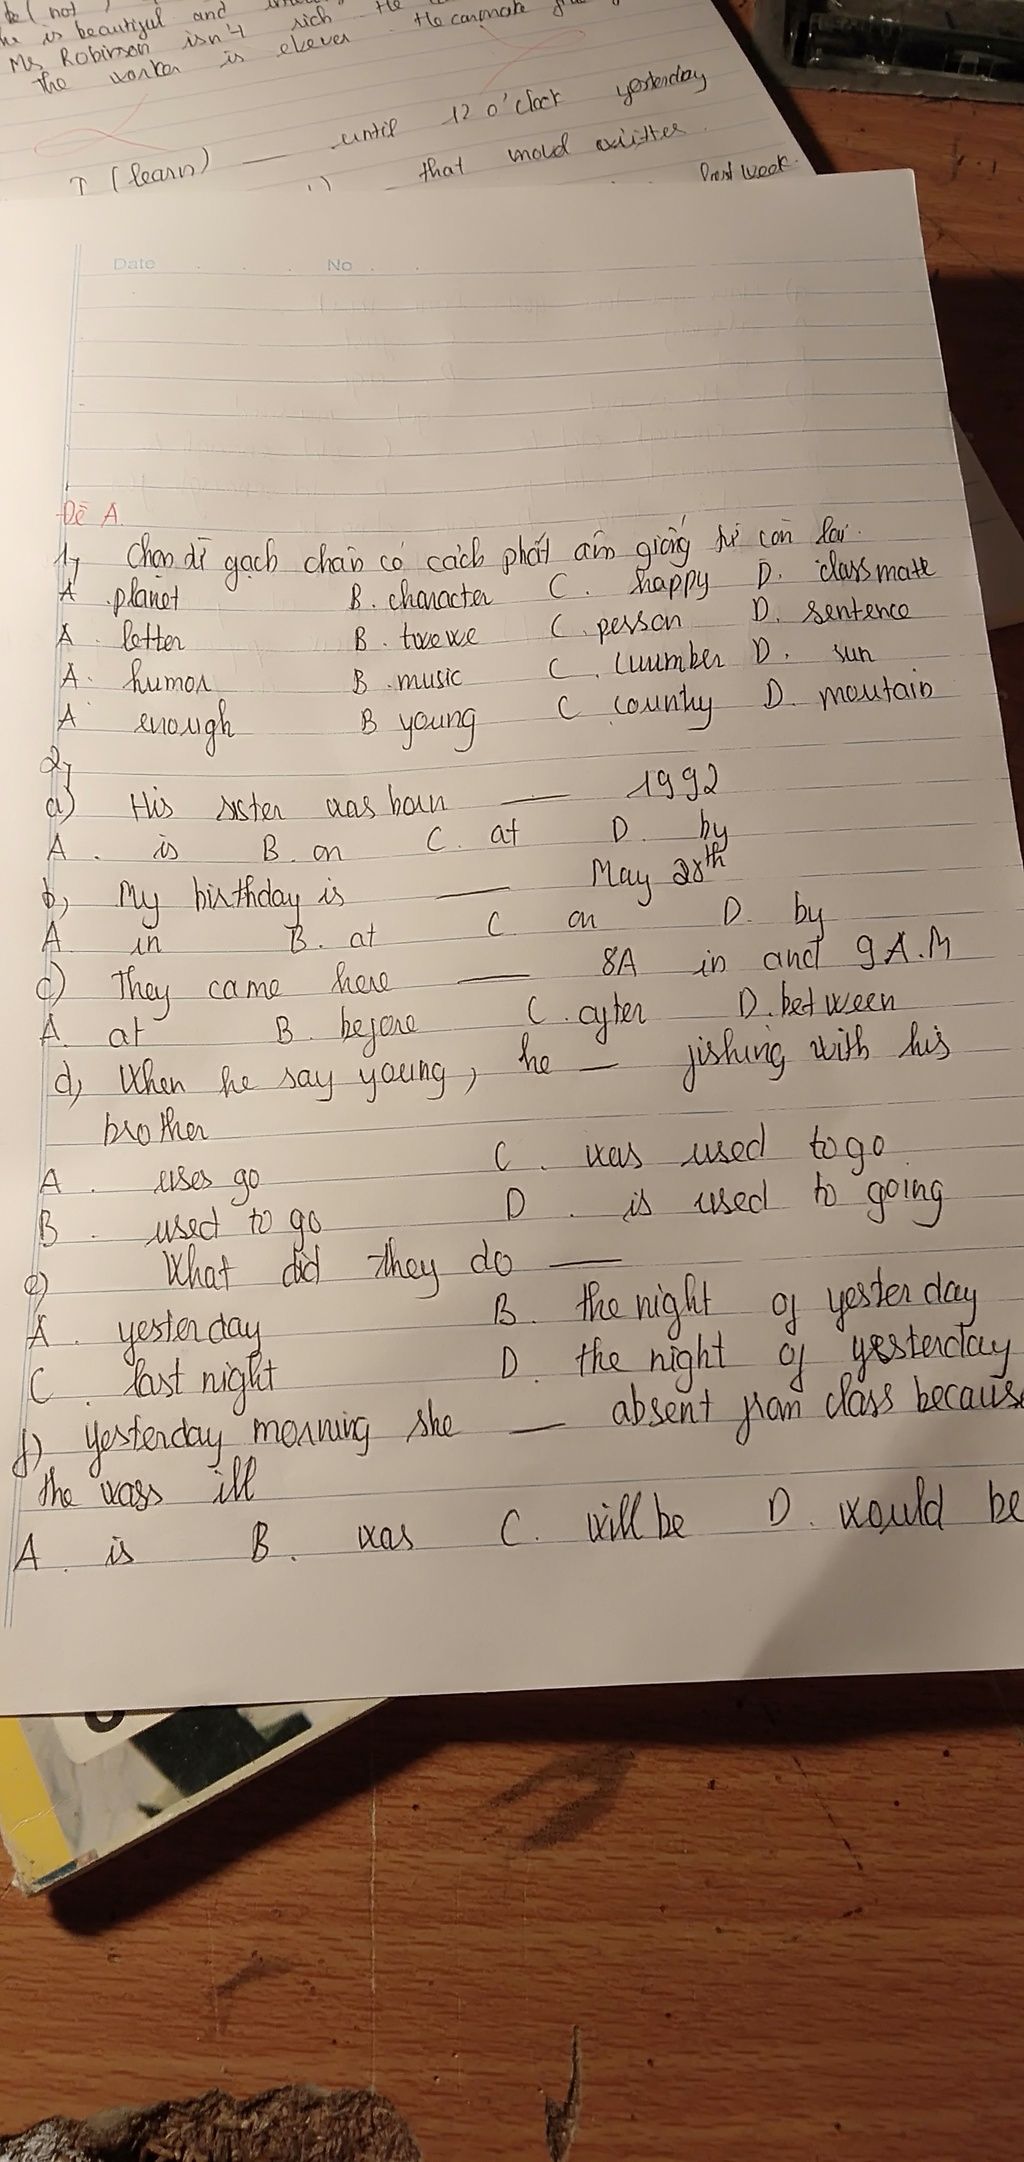 be (not)
he is beautiful and
Ms Robinson isn't rich He
The worker is clever. He can make
I (learn) — until 12 o'clock yesterday
that
last week.
Date No
Đề A.
1, Chọn từ gạch chân có cách phát âm giống từ còn lại.
A planet B. character C. happy D. classmate
A. letter B. twewe C. person D. sentence
A. humor B. music C. D. sun
A enough B young C country D. moutain
2,
a) His sister was born — 1992
A. is B. on C. at D. by
b, My birthday is — May 28th
A. in B. at C on D. by
c) They came here — 8A in and 9 A.M
A. at B. before C. after D. between
d, When he say young, he — fishing with his
brother
A. uses go C. was used to go
B. used to go D. is used to going
e) What did they do —
A. yesterday B. the night of yesterday
C. last night D. the night of yesterday
f) yesterday morning she — absent from class because
the wass ill
A. is B. was C. will be D. would be